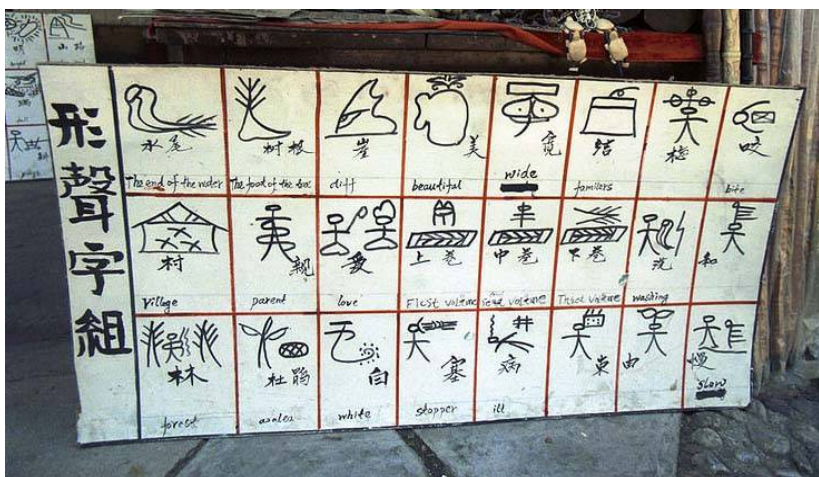 形聲字組
水尾
The end of the water
树根
The foot of the tree
崖
cliff
美
beautiful
寬
wide
结
familars
楼
咬
bite
村
village
親
parent
愛
love
上卷
First volume
中卷
下卷
洗
washing
和
林
forest
杜鹃
azalea
白
white
塞
stopper
病
ill
東
由
慢
slow